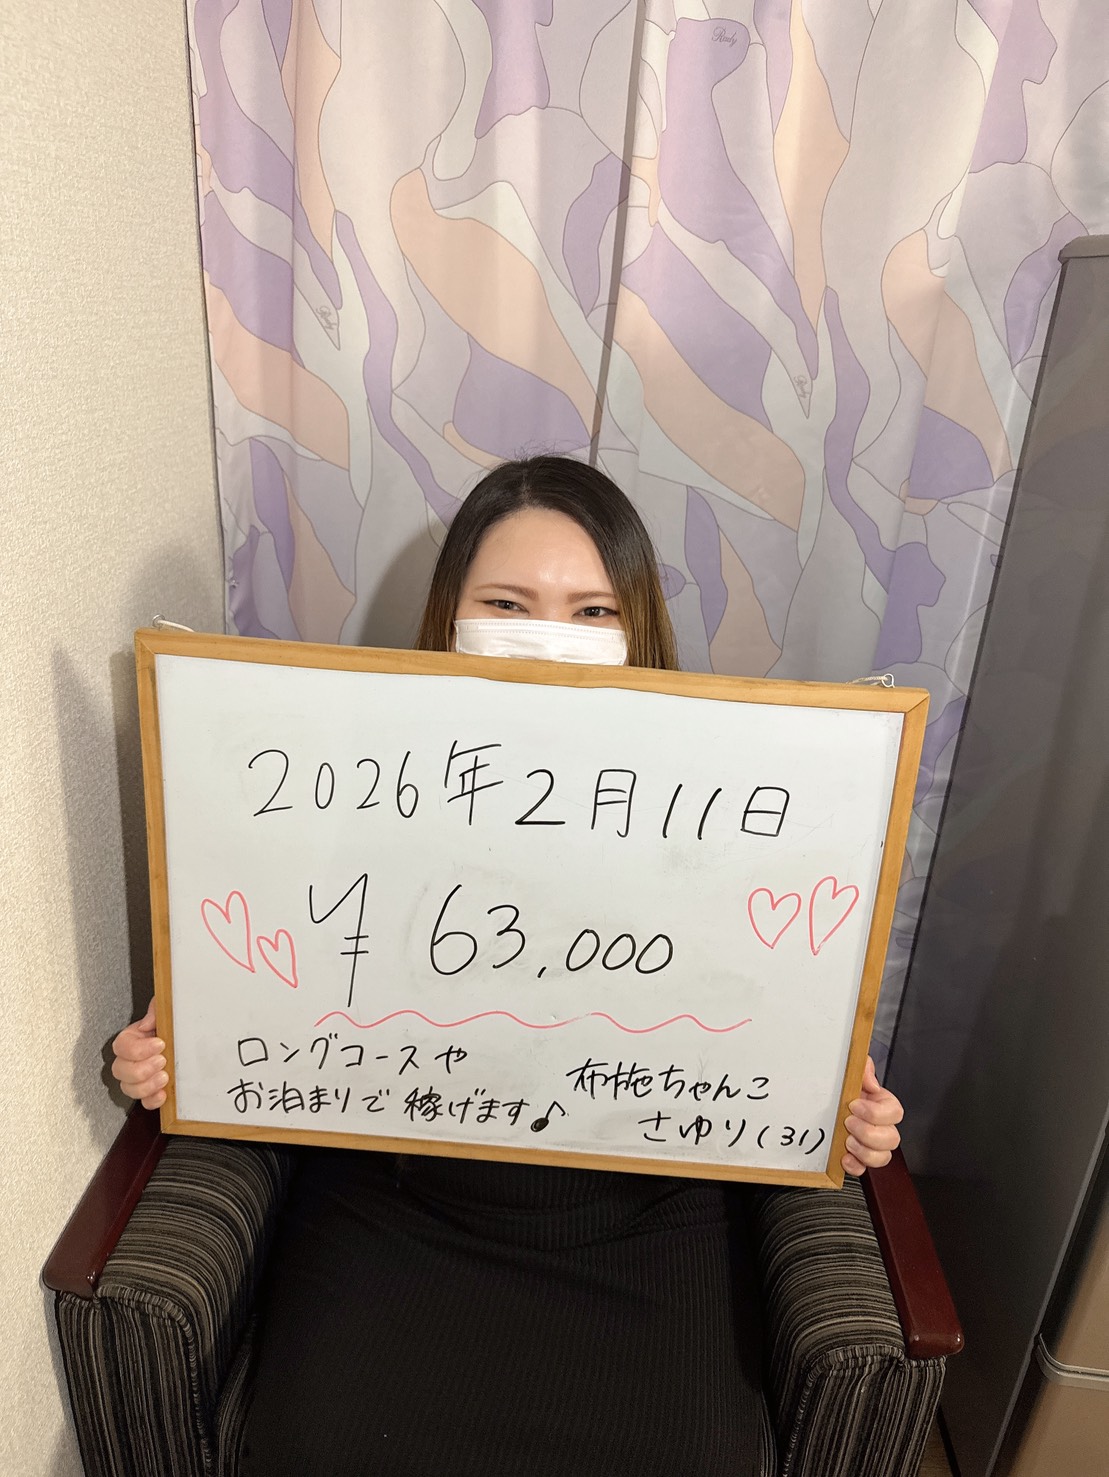 2026年2月11日
¥ 63,000
ロングコースや
お泊まりで稼げます♪
布施ちゃんこ
さゆり(31)
Rady